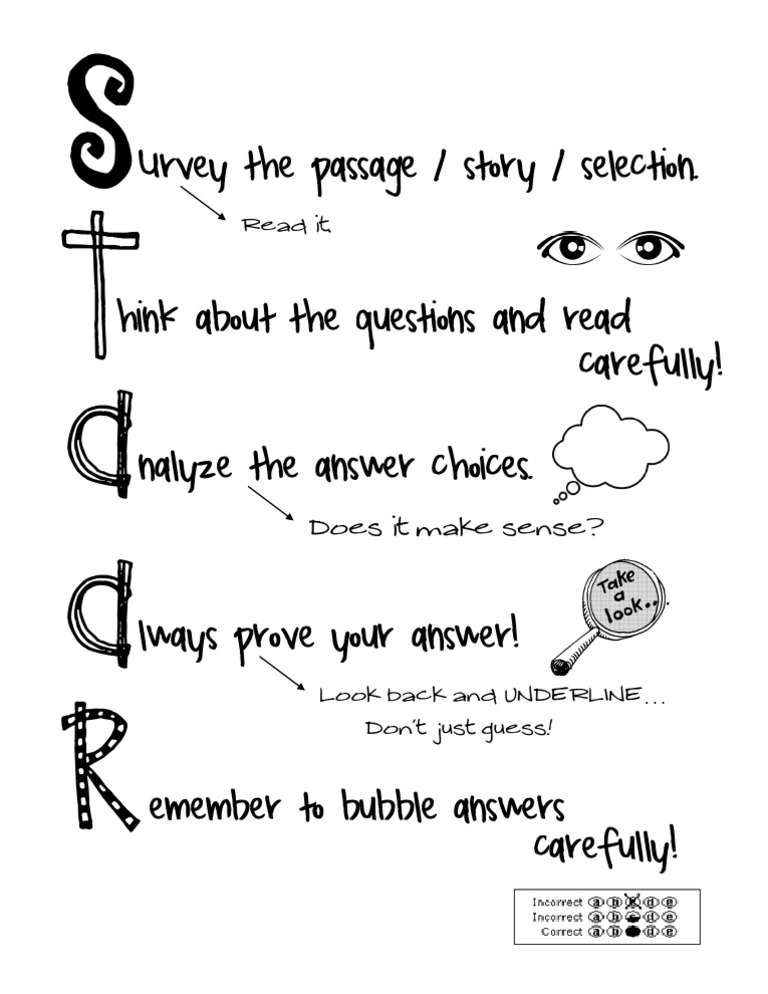 Survey the passage / story / selection.
Read it.
Think about the questions and read
carefully!
analyze the answer choices.
Does it make sense?
always prove your answer!
Take
a
look...
Look back and UNDERLINE...
Don't just guess!
Remember to bubble answers
carefully!
Incorrect a b c d e
Incorrect a b c d e
Correct a b d e